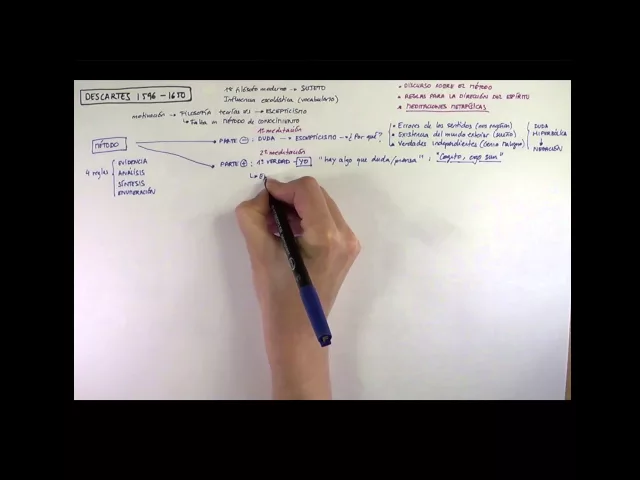 DESCARTES 1596-1650
1er filósofo moderno → SUJETO
Influencia escolástica (vocabulario)
motivación → FILOSOFÍA teorías → ESCEPTICISMO
↳ Falta un MÉTODO DE CONOCIMIENTO
• DISCURSO SOBRE EL MÉTODO
• REGLAS PARA LA DIRECCIÓN DEL ESPÍRITU
• MEDITACIONES METAFÍSICAS
MÉTODO
1ª meditación
PARTE ⊖ : DUDA → ESCEPTICISMO → ¿Por qué?
• Errores de los sentidos (nos engañan)
• Existencia del mundo exterior (sueño)
• Verdades independientes (Genio Maligno)
DUDA
HIPERBÓLICA
↓
NEGACIÓN
2ª meditación
PARTE ⊕ : 1ª VERDAD → YO "hay algo que duda/piensa" ; "Cogito, ergo sum"
4 reglas
EVIDENCIA
ANÁLISIS
SÍNTESIS
ENUMERACIÓN